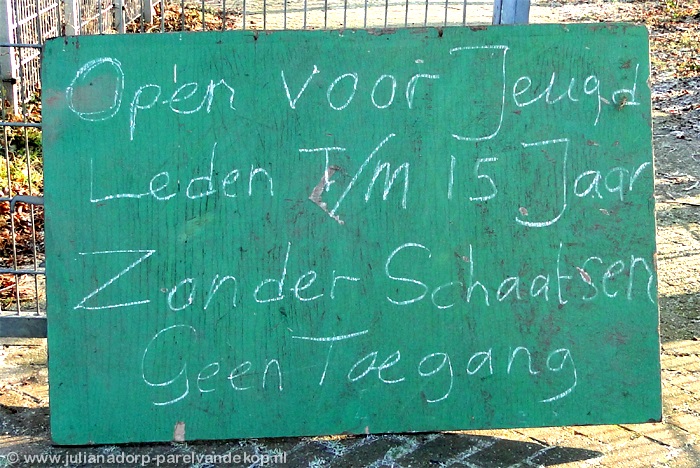 Open voor Jeugd
Leden T/m 15 Jaar
Zonder Schaatsen
Geen Toegang
© www.julianadorp-parelvandekop.nl